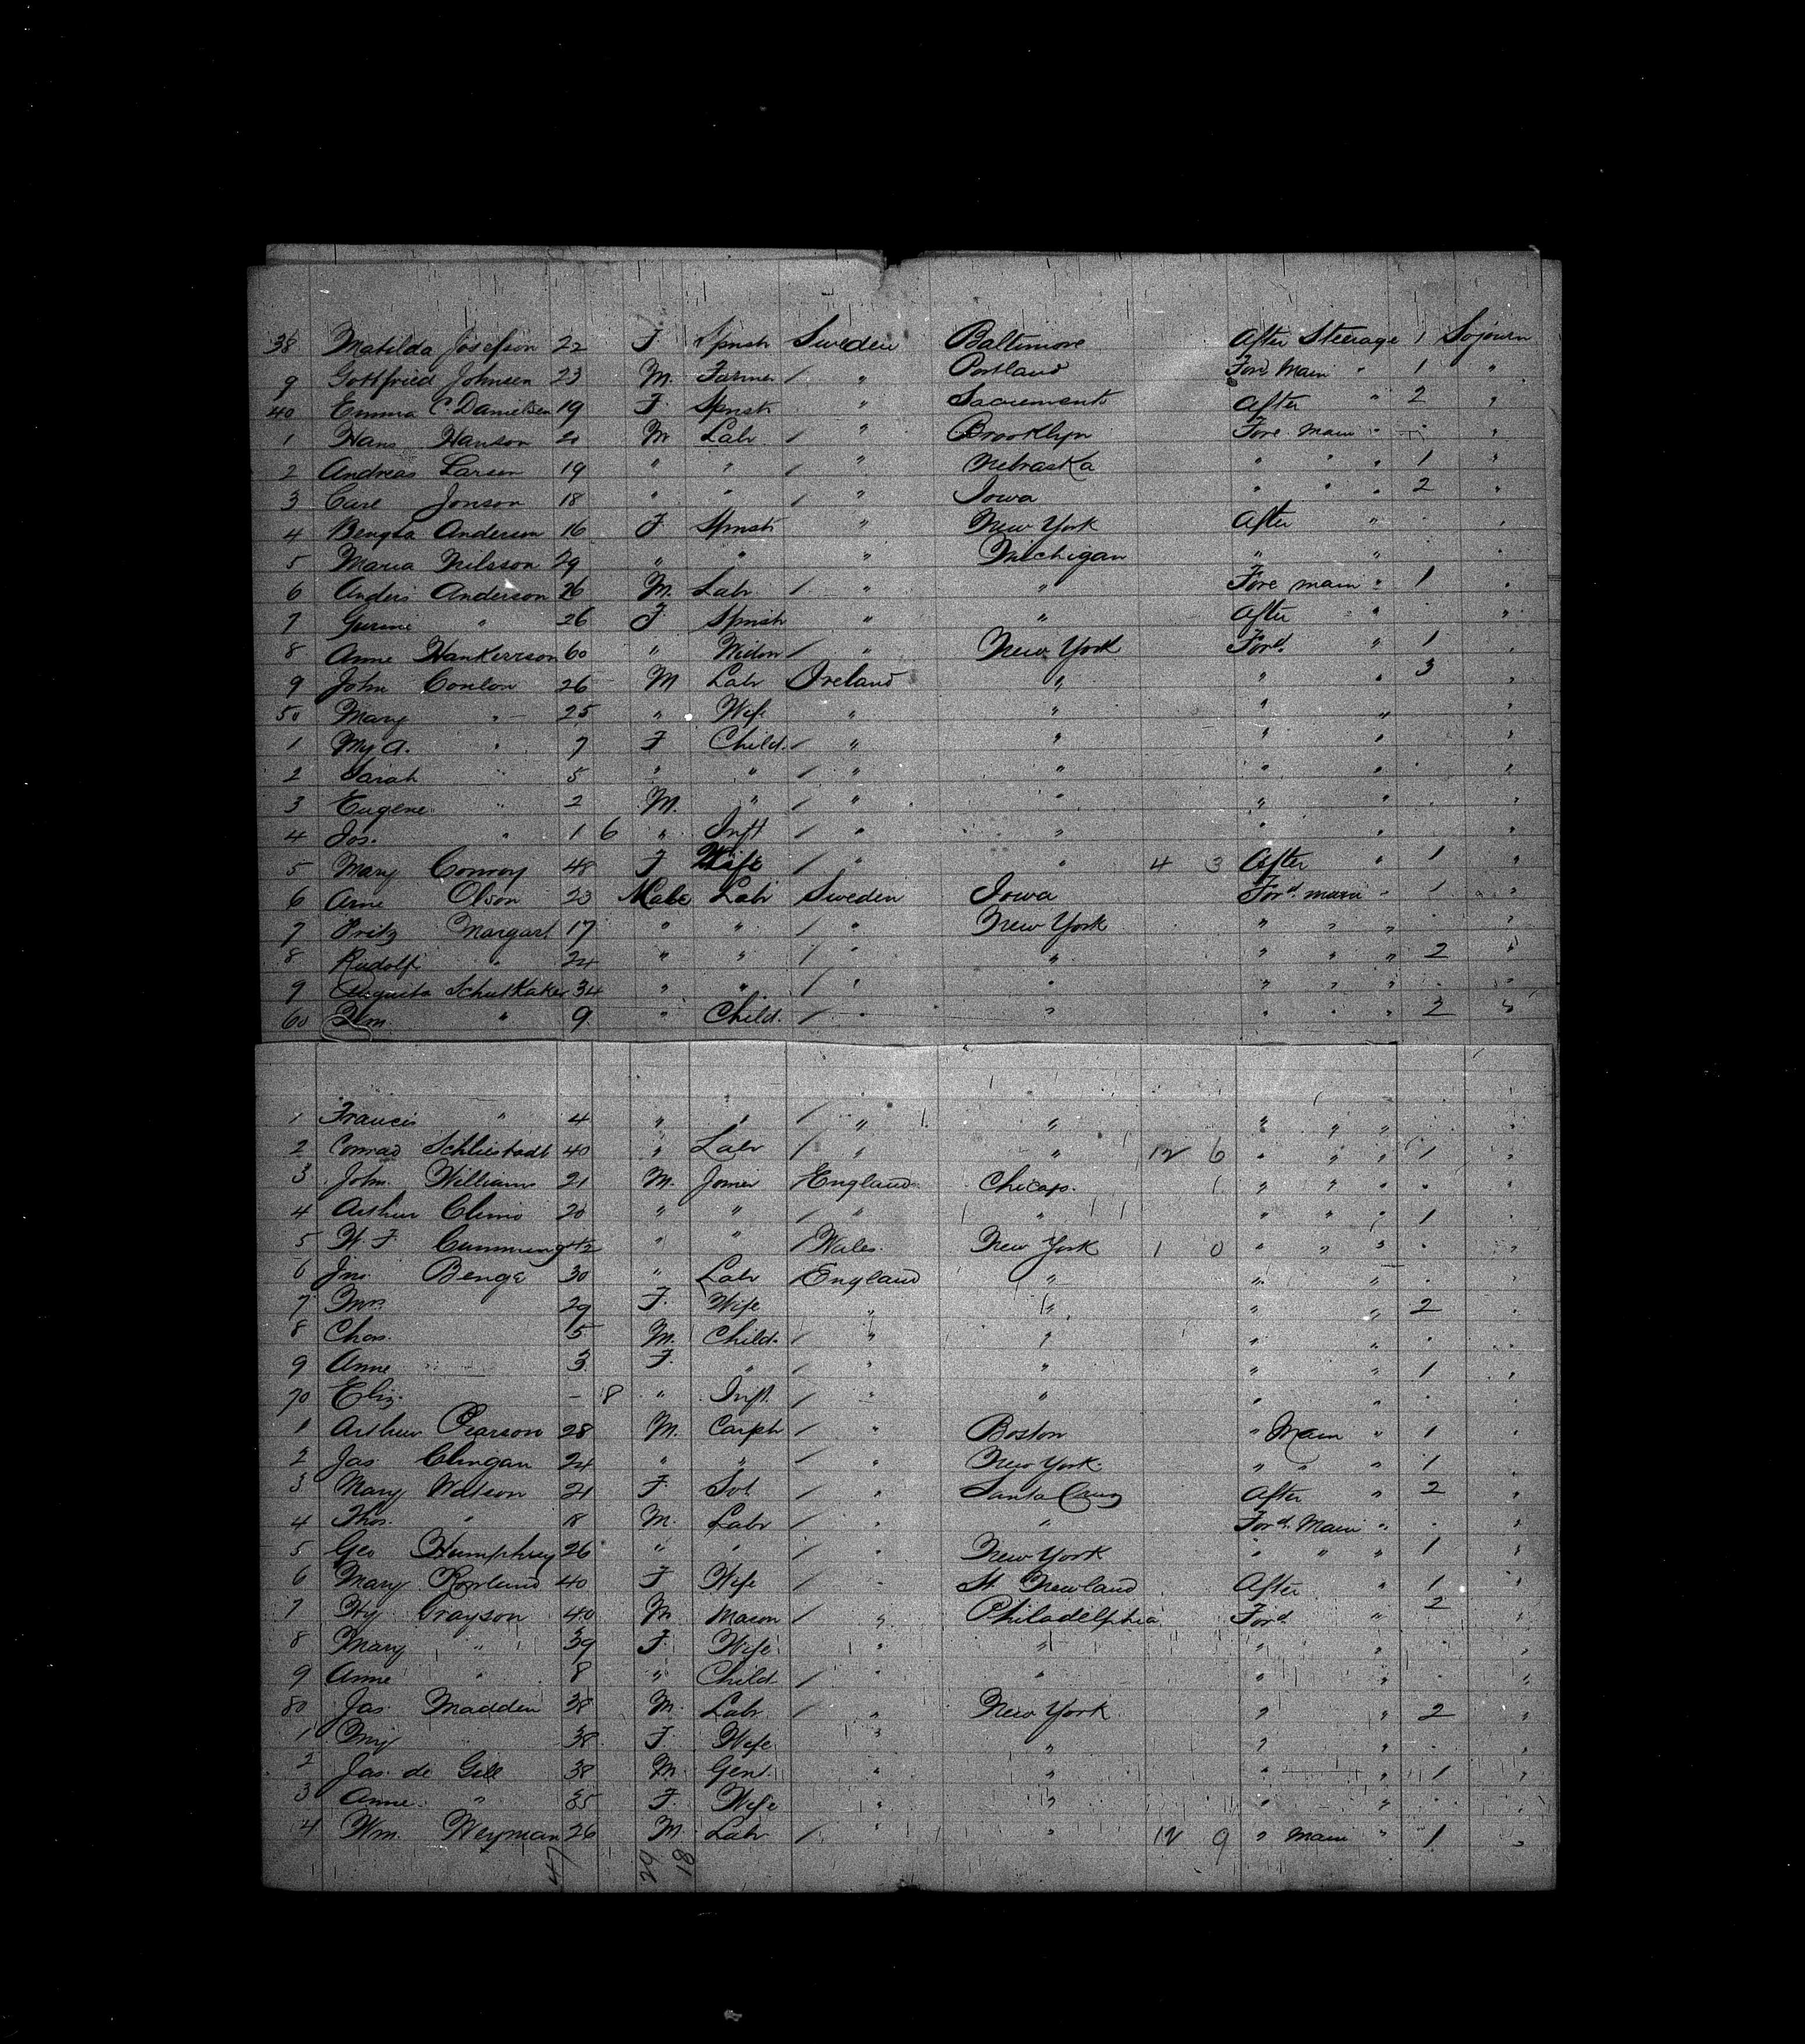 38 Matilda Josefson 22 F Spnstr Sweden Baltimore After Steerage 1 Sojourn
9 Gottfried Johnsen 23 M. Farmer / " Portland Ford Main " 1 "
40 Emma C. Danielsen 19 F. Spnstr " Sacremento After " 2 "
1 Hans Hanson 21 M Labr / " Brooklyn Fore Main " "
2 Andreas Larsen 19 " " / " Nebraska " " " 1 "
3 Carl Jonson 18 " " / " Iowa " " " 2 "
4 Bengta Anderson 16 F Spnstr " New York After " " "
5 Maria Nilsson 29 " " " Michigan " " "
6 Anders Anderson 26 M. Labr / " " Fore main " 1 "
7 " 26 F. Spnstr " " After " " "
8 Anne Hankerrson 60 " Widow / " New York Ford. " 1 "
9 John Conlon 26 M Labr Ireland " " " 3 "
50 Mary " 25 " Wife " " " " "
1 My A. " 7 F Child / " " " " "
2 Sarah " 5 " " / " " " " " "
3 Eugene " 2 M. " / " " " " " "
4 Jos. " 1 6 " Inft / " " " " "
5 Mary Conroy 48 F Wife / " " 4 3 After " 1 "
6 Arne Olson 23 Male Labr Sweden Iowa Ford. main " 1 "
7 Fritz Nargart 17 " " / " New York " " " "
8 Rudolf " 24 " " / " " " " " 2 "
9 Schutkaker 34 " " / " " " " " " "
60 Wm. " 9 " Child / " " " " " 2 "
1 Francis " 4 " " / " " " " " " "
2 Conrad Schliestadt 40 " Labr / " " 12 6 " " " 1 "
3 John Williams 21 M. Joiner England Chicago. " " " " "
4 Arthur Climo 20 " " / " " " " " 1 "
5 W. F. Cumming 42 " " / Wales. New York 1 0 " " " " "
6 Jno. Benge 30 " Labr / England " " " " "
7 Mrs. 29 F. Wife " " " " 2 "
8 Chas. 5 M. Child / " " " " " "
9 Anne 3 F. " / " " " " 1 "
70 Eliz. – 8 " Inft. / " " " " " "
1 Arthur Pearson 28 M. Carptr / " Boston " Main " 1 "
2 Jas Clingan 24 " " / " New York " " " 1 "
3 Mary Watson 21 F. / " Santa Cruz After " 2 "
4 Thos. " 18 M. Labr / " " Ford. Main " " "
5 Geo Humphrey 26 " " / " New York " " " 1 "
6 Mary Rowland 40 F Wife / " St. Newland After " 1 "
7 Hy Grayson 40 M Mason / " Philadelphia Ford " 2 "
8 Mary " 39 F. Wife " " " " " "
9 Anne " 8 " Child / " " " " " "
80 Jas Madden 38 M. Labr / " New York " " 2 "
1 My " 38 F. Wife " " " " " "
2 Jas. de Gill 38 M. Gen " " " " 1 "
3 Anne " 35 F. Wife " " " " " "
4 Wm. Weyman 26 M. Labr / " " 12 9 " Main " 1 "
47 29 18